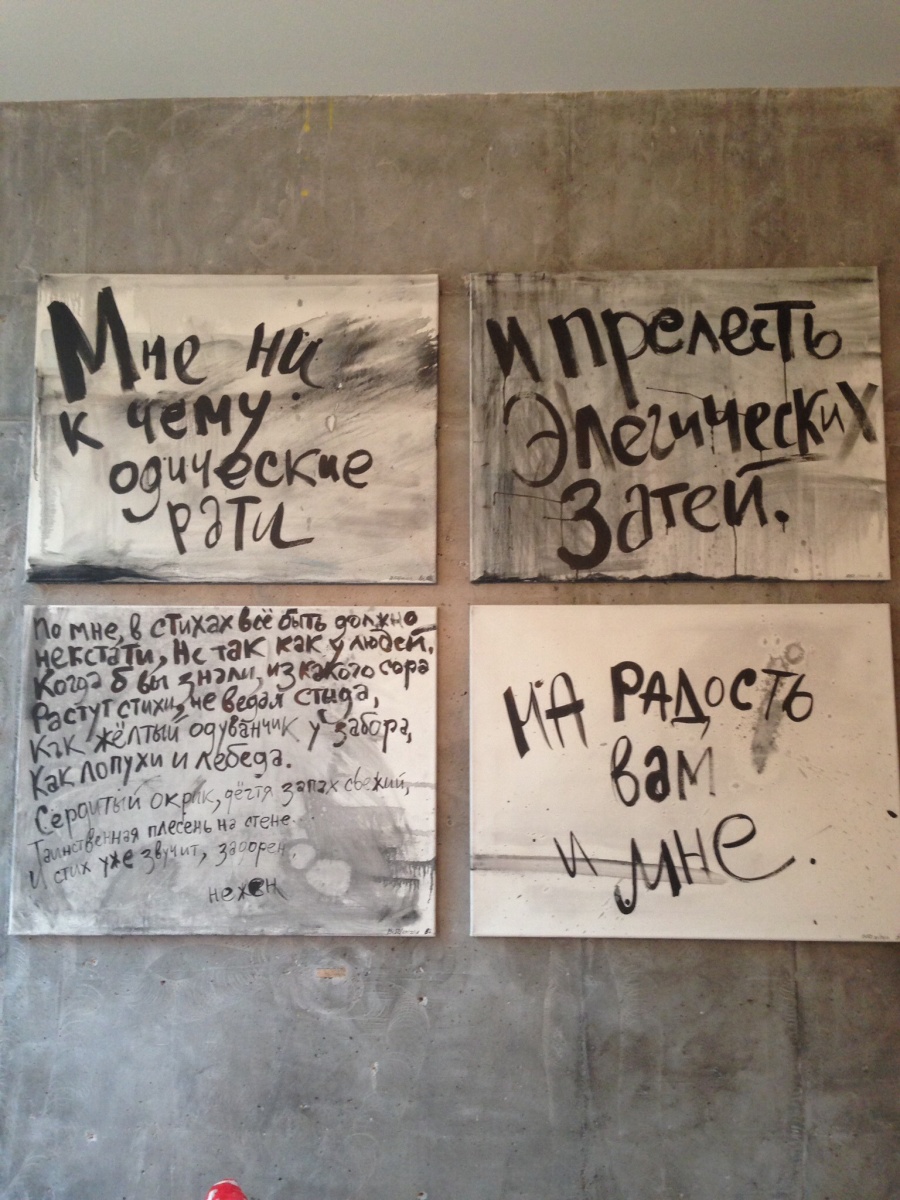 Мне ни
к чему
одические
рати
и прелесть
Элегических
Затей.
По мне, в стихах всё быть должно
некстати, Не так как у людей.
Когда б вы знали, из какого сора
Растут стихи, не ведая стыда,
Как жёлтый одуванчик у забора,
Как лопухи и лебеда.
Сердитый окрик, дёгтя запах свежий,
Таинственная плесень на стене...
И стих уже звучит, задорен,
нежен
НА РАДОСТЬ
вам
и мне.